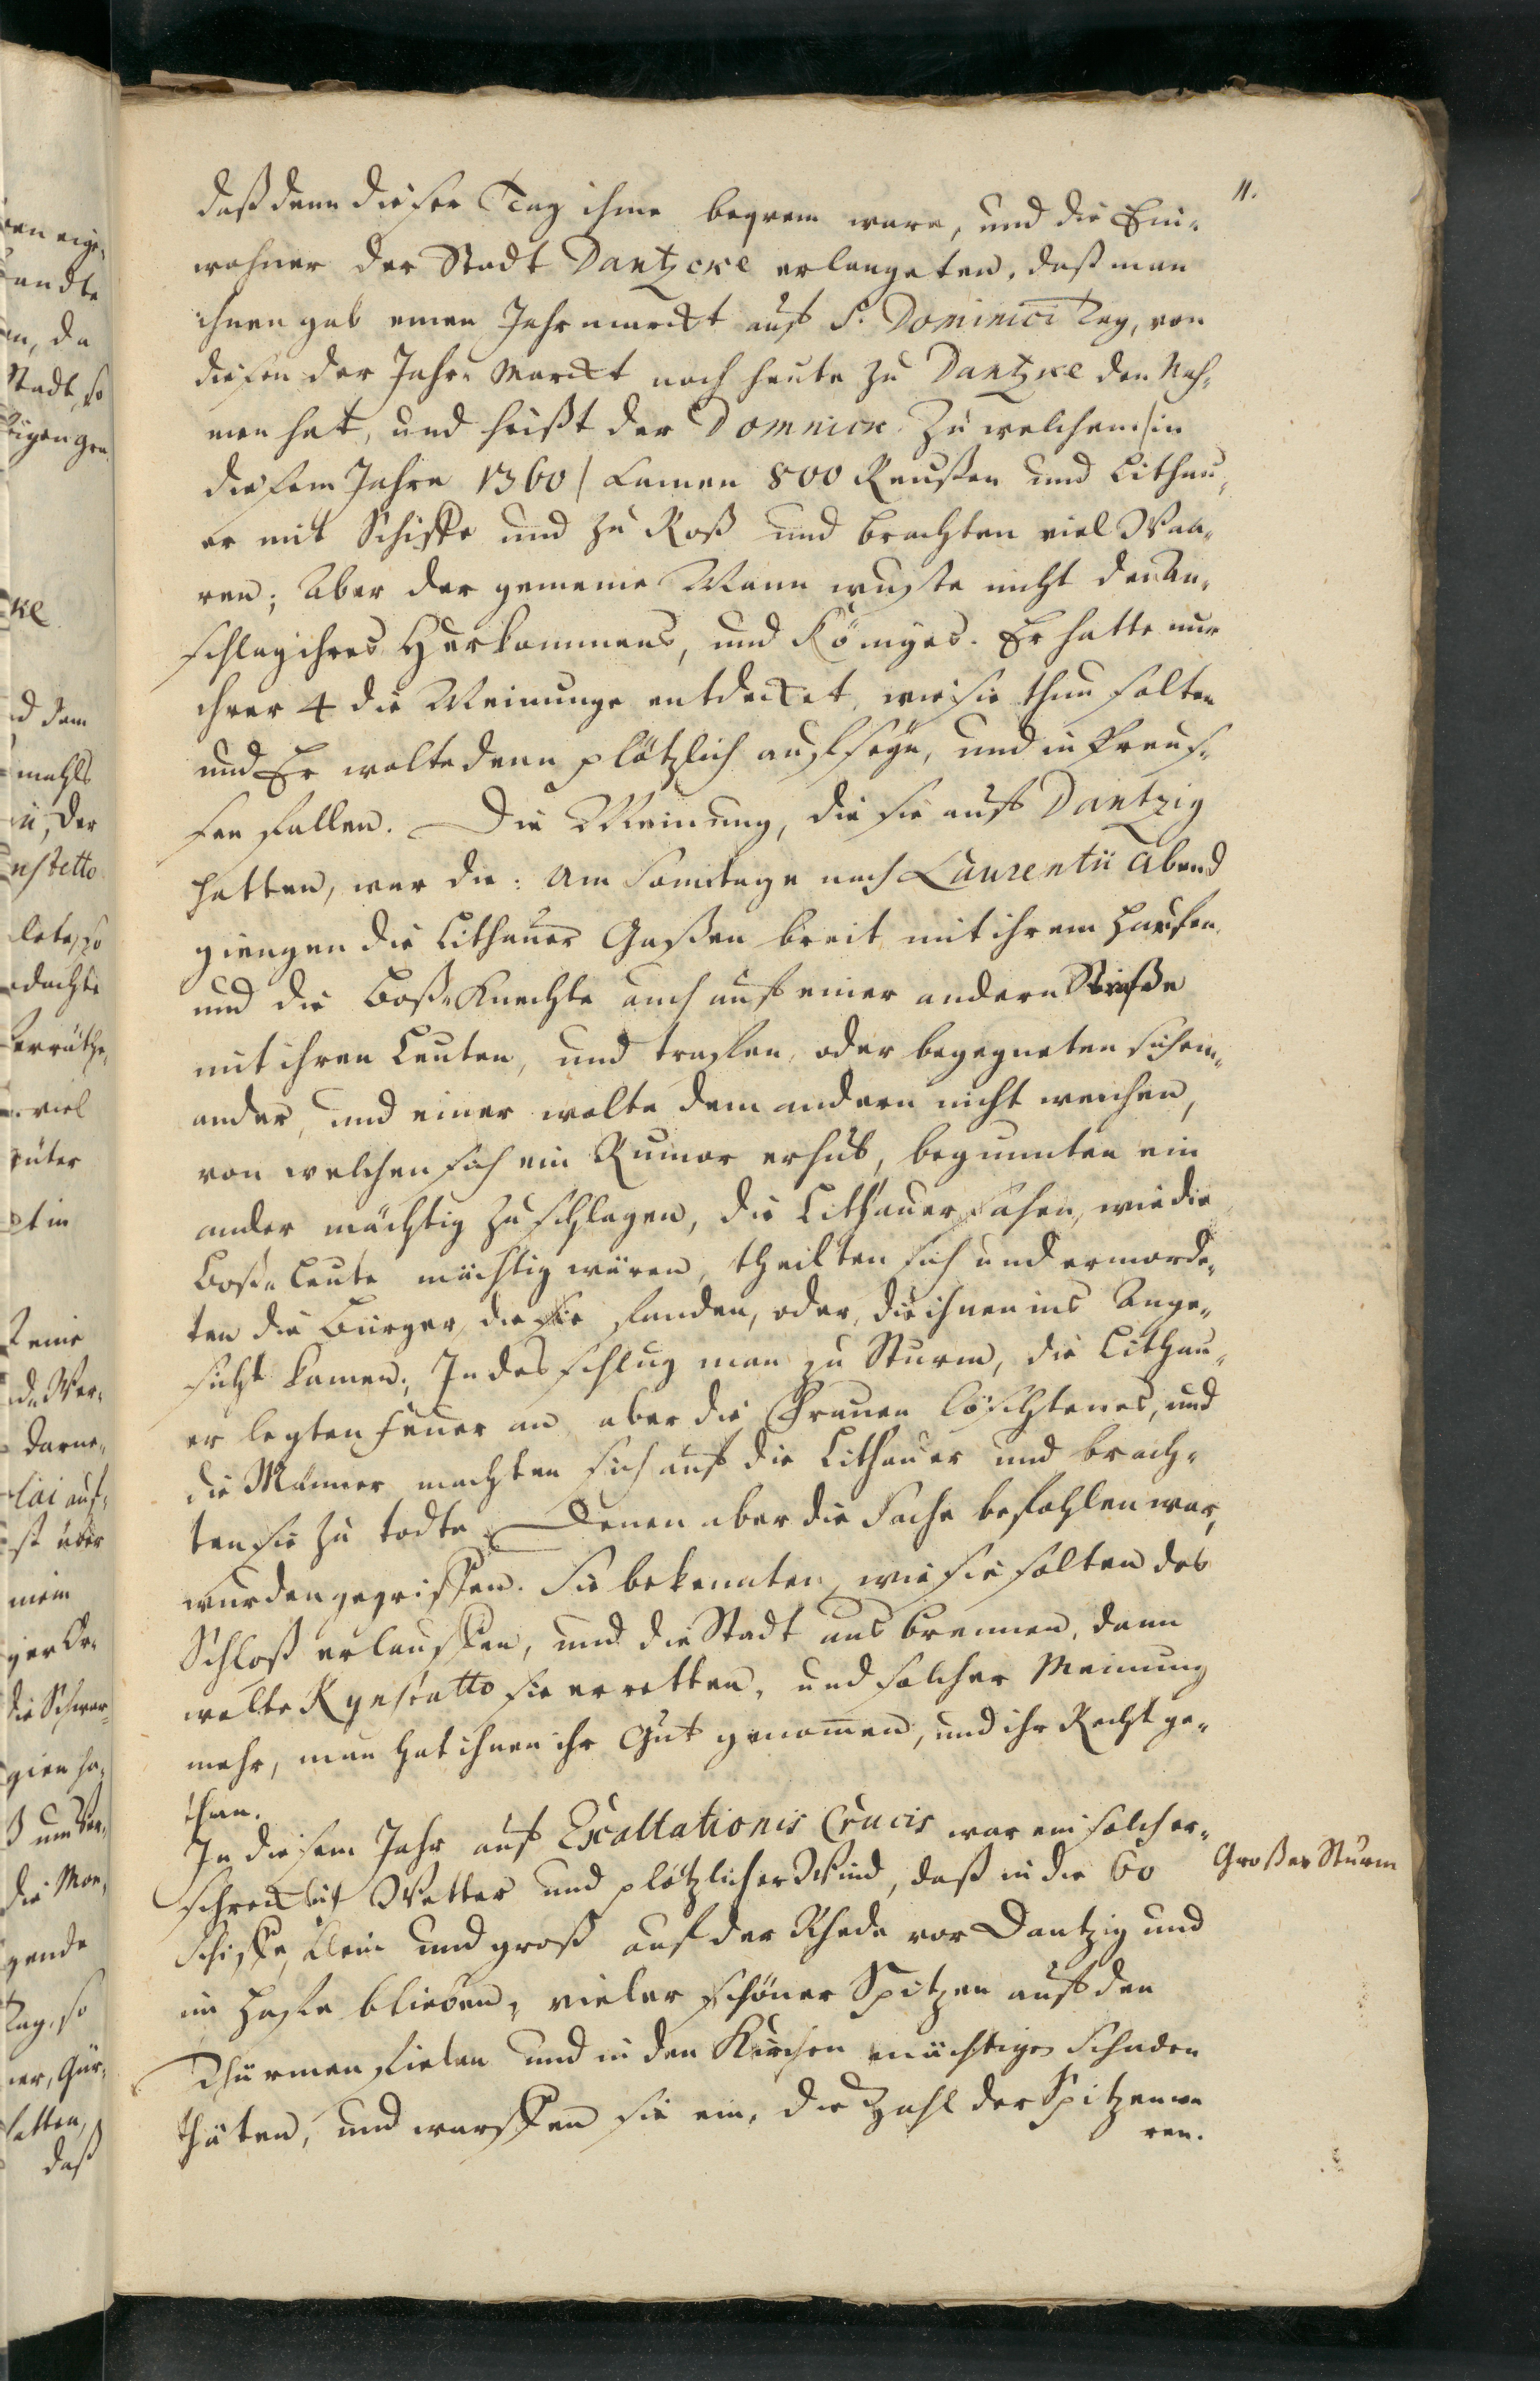 11.
daß denn dieser Tag ihme beqvem ware, und die Ein-
wohner der Stadt Dantzcke erlangeten, daß man
ihnen gab einen Jahrmarckt auf S. Dominici Tag, von
diesen der Jahr-Marckt noch heute zu Dantzke den Nah-
men hat, und heißt der Domnick. Zu welchem /in
diesem Jahre 1360/ kamen 800 Reußen und Lithau-
er mit Schiffe und zu Roß und brachten viel Waa-
ren; Aber der gemeine Mann wuste nicht den An-
schlag ihres Herkommens, und Königes. Er hatte nur
ihrer 4 die Meinunge entdecket, wie sie thun solten
und Er wolte denn plötzlich auf seyn, und in Preus-
sen fallen. Die Meinung, die sie auf Dantzig
hatten, war die: Am Sontage nach Laurentii Abend
giengen die Lithauer Gaßen breit mit ihrem Haufen
und die Boß-Knechte auch auf einer andern Straße
mit ihren Leuten, und traffen, oder begegneten sich ein-
ander, und einer wolte dem andern nicht weichen,
von welchen sich ein Rumor erhub, begunnten ein
ander mächtig zu schlagen, die Lithauer sahen, wie die
Boß-Leute mächtig wären, theilten sich und ermorde-
ten die Bürger, die sie funden, oder, die ihnen ins Ange-
sicht kamen, In des schlug man zu Sturm, die Lithau-
er legten Feuer an aber die Frauen löschten es, und
die Männer machten sich auf die Lithauer und brach-
ten sie zu todte. Denen aber die Sache befohlen war,
wurden gegriffen. Sie bekennten, wie sie solten das
Schloß erlauffen, und die Stadt aus brennen, dann
wolte Kynstatto sie erretten, und solcher Meinung
mehr, man hat ihnen ihr Gut genomen, und ihr Recht ge-
than.
In diesem Jahr auf Exaltationis Crucis war ein solch er-
schrecklich Wetter und plötzlicher Wind, daß in die 60
Großer Sturm
Schiffe, klein und groß auf der Rhede vor Dantzig und
im Haffe blieben, vieler schöner Spitzen auf den
Thürmen fielen und in den Kirchen mächtigen Schaden
thäten, und wurffen sie ein, die Zahl der Spitzen wa
ren.